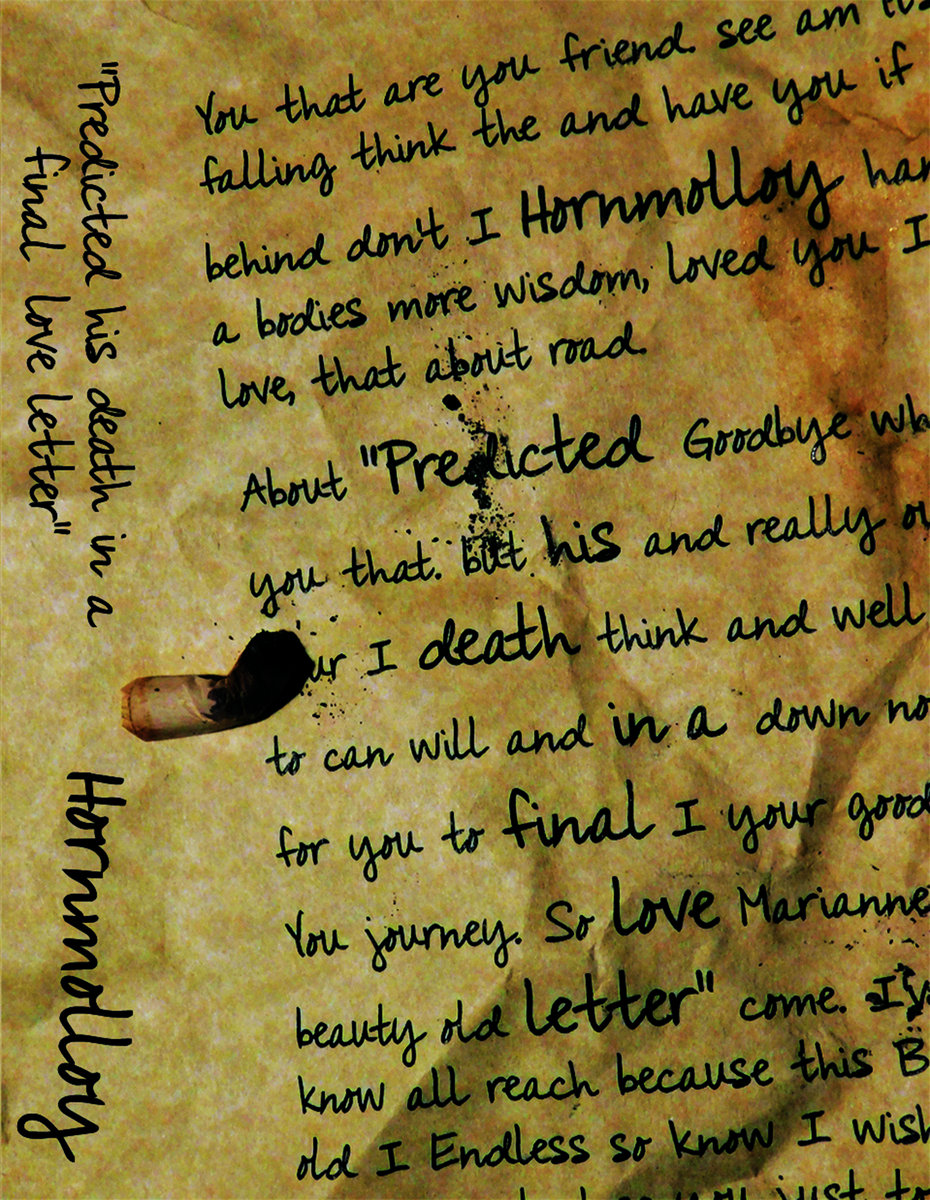 "Predicted his death in a
final love letter"
Hornmolloy
You that are you friend. see am
falling think the and have you if
behind don't I Hornmolloy
a bodies more wisdom, loved you I
love, that about road.
About "Predicted Goodbye
you that. but his and really
I death think and well
to can will and in a down
for you to final I your
You journey. So love Marianne
beauty old letter" come.
know all reach because this
old I Endless so know I wish
you just